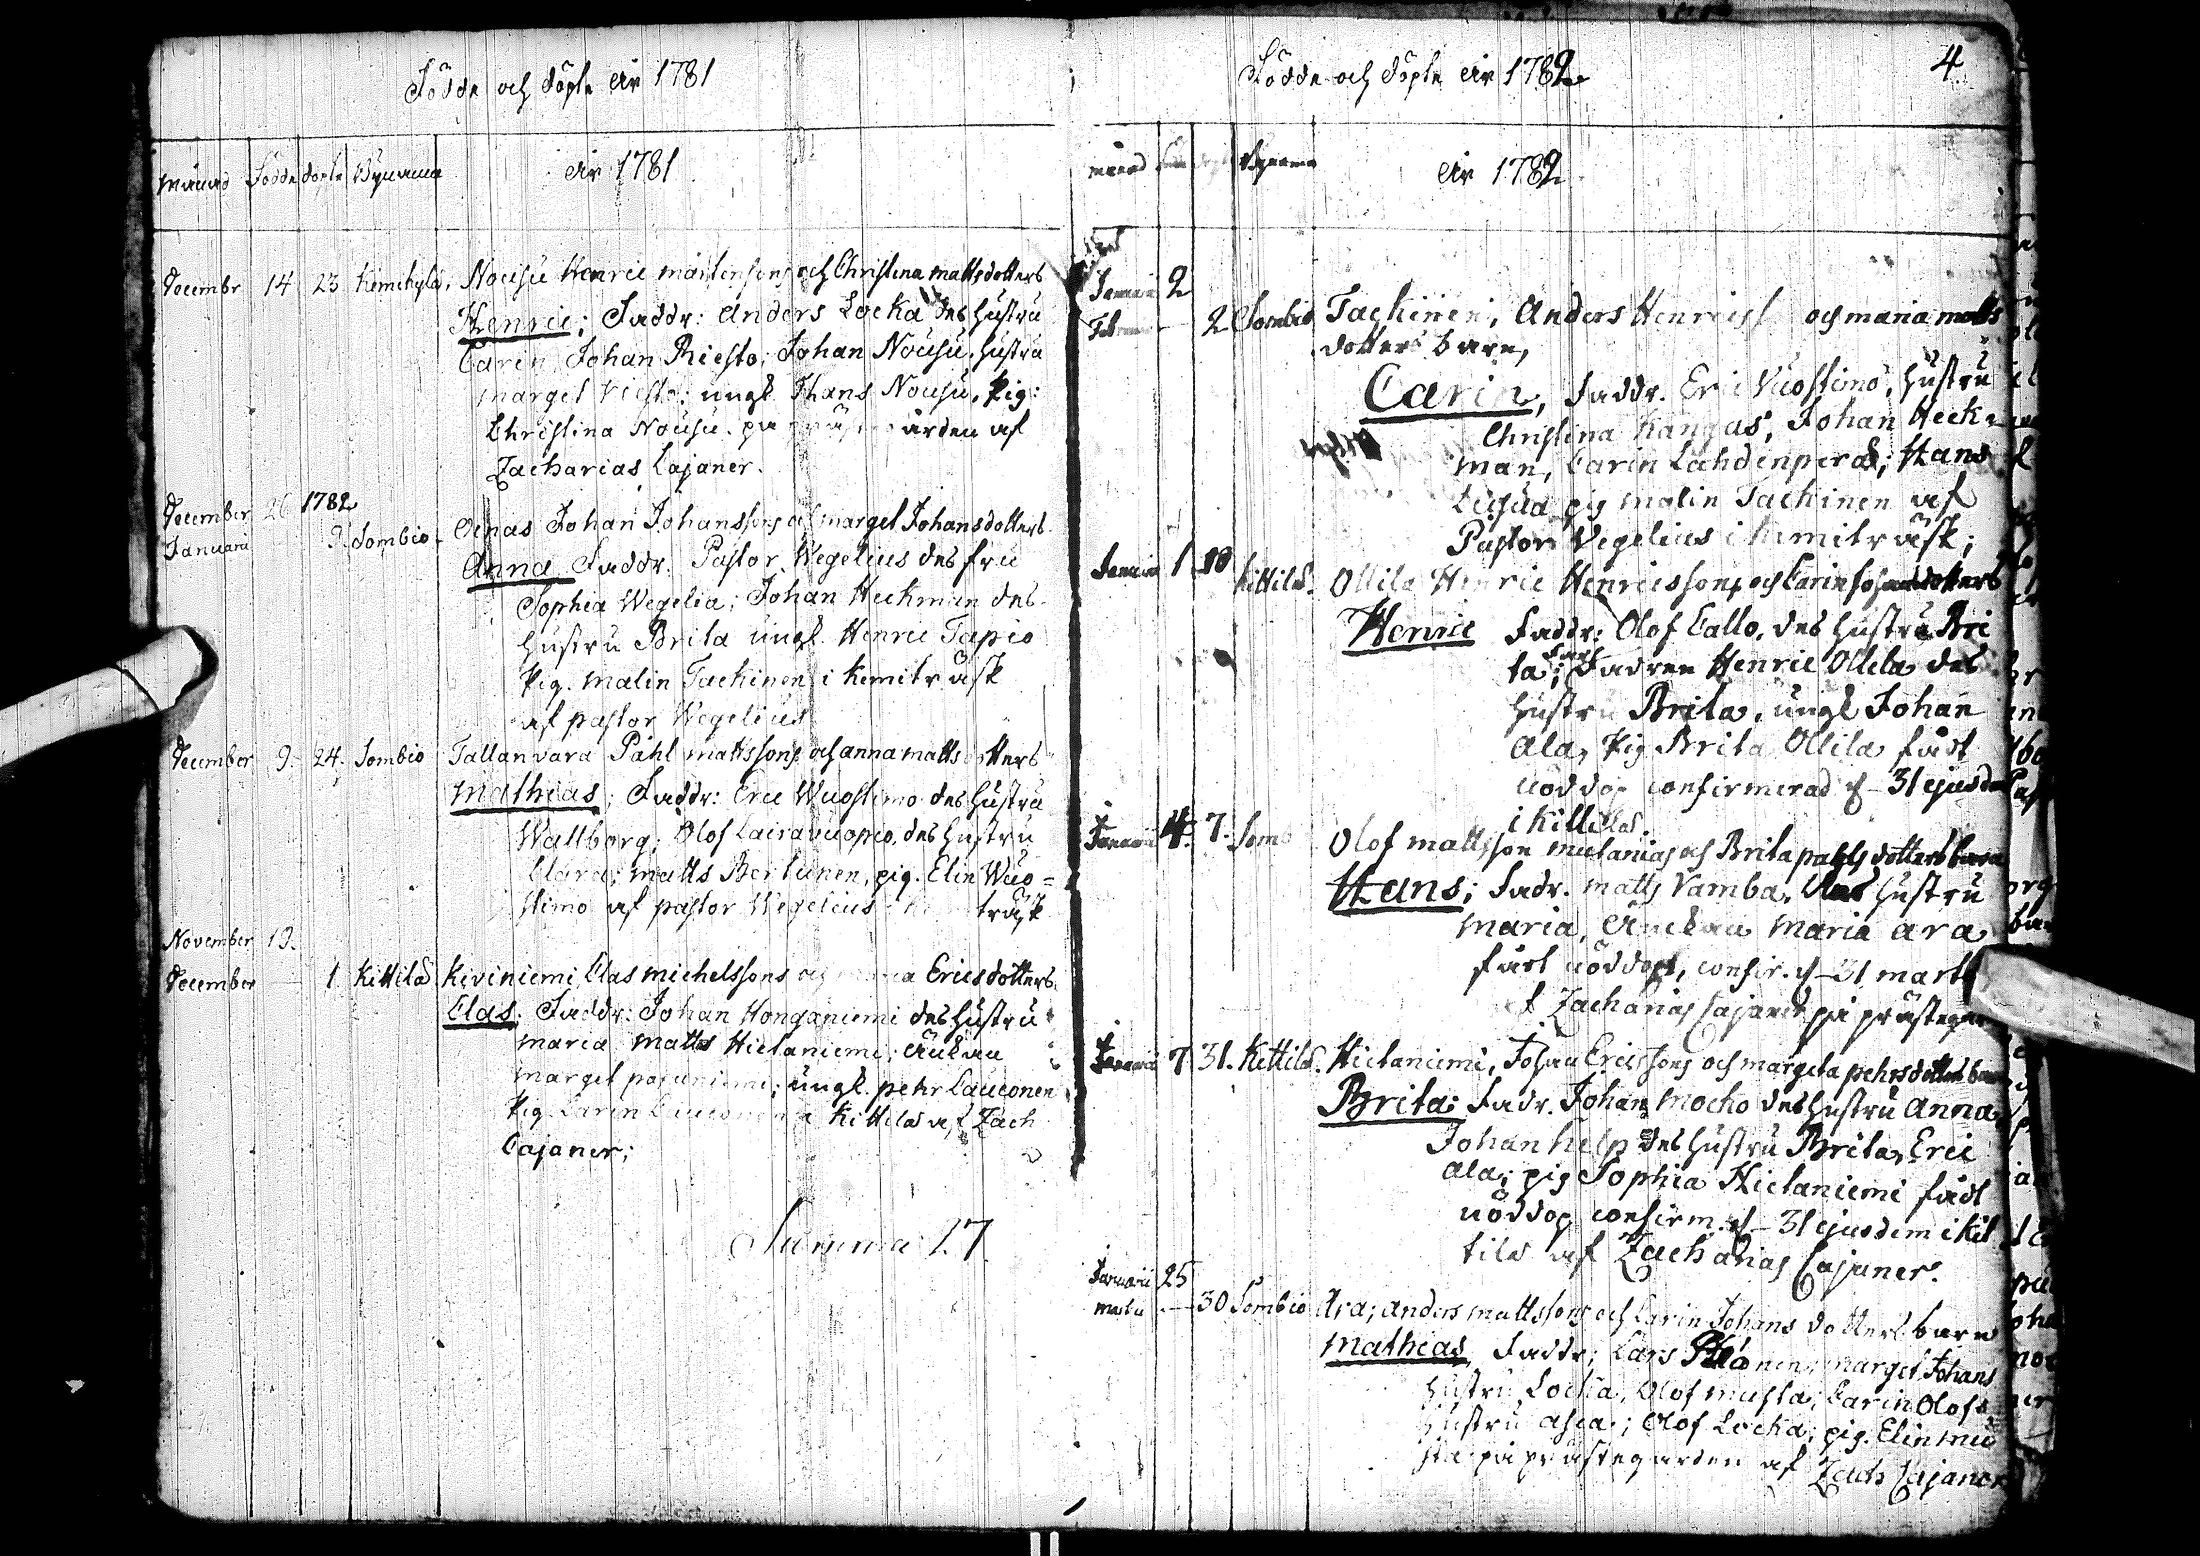 Födde och döpte År 1781
månad Födde döpte Bÿnamn År 1781
Decembr 14 23 Kemikylä, Nousu Henric mårtensons och Christina mattsdotters
Henric; Faddr: Anders Locka des hustru
Carin, Johan Riesto; Johan Nousu, hustru
marget riesto; ungk. Hans Nousu, Pig:
Christina Nousu. på ården af
Zacharias Cajaner.
December 26 1782
Januarii 9. Sombio Oenas Johan Johanssons och marget Johansdotters
Anna Faddr. Pastor Wegelius des fru
Sophia Wegelia; Johan Heckman des
hustru Brita ungk. Henric Tapio
Pig. malin Tackinen i Kemiträsk
af pastor Wegelius
December 9. 24. Sombio Tallanvara Påhl mattssons och anna matts dotters
mathias; Faddr: Eric Wuostimo des hustru
Wallborg; Olof Cairavuopio, des hustru
Clara; matts Bertunen, pig. Elin Wuo=
stimo af pastor Wegelius träsk
November 19.
December — 1. Kittilä Kiviniemi, Clas michelssons Ericsdotters
Clas; Faddr: Johan Honganiemi des hustru
maria matts Hietaniemi; Änkan
marget pasuniemi; ungk. pehr Lauconen
Pig. Carin Kittilä af Zach
Cajaner;
Summa 17
Födde och döpte År 1782 4
månad Bÿnamn År 1782
Januarii 2
Februarii — 2 Sombio Tackinen, Anders Henricss och maria matts
dotters barn,
Carin, Faddr. Eric Vuostimo, hustru
Christina Kangas, Johan Heck
man, Carin Lahdenperä; Hans
pig malin Tackinen af
Pastor Wegelius i Kemiträsk;
Januarii 1 Kittilä. Ollila Henric Henricssons och Carin Johansdotters
Henric Faddr: Olof Callo, des hustru Bri
ta; Fadren Henric Ollila des
hustru Brita, ungk Johan
Ala, Pig Brita Ollila fådt
nöddop confirmerad d— 31 ejusdem
i Kittilä.
Januarii 4. 7. Somb Olof mattsson mulanias och Brita pahls dotters barn
Hans; Fadr. matts Vamba, des hustru
maria, Änckan maria ara
fådt nöddop, confir. d— 31 marti
af Zacharias Cajaner på prästegår
Januarii 7 31. Kittilä. Hietaniemi, Johan Ericssons och margeta pehrsdotters barn
Brita; Fadr. Johan mocko des hustru Anna,
Johan help des hustru Brita, Eric
Ala; pig Sophia Hietaniemi fådt
nöddop confirm. d— 31 ejusdem i Kit
tilä af Zacharias Cajaner.
Januarii 25
martii — 30 Sombio Ara; anders mattssons och Carin Johans dotters barn
mathias, Faddr; Lars marget Johans
hustru Locka, Olof musta; Carin Olofs
hustru asca; Olof Locka; pig. Elin mu
sta på prästegården af Zach Cajaner